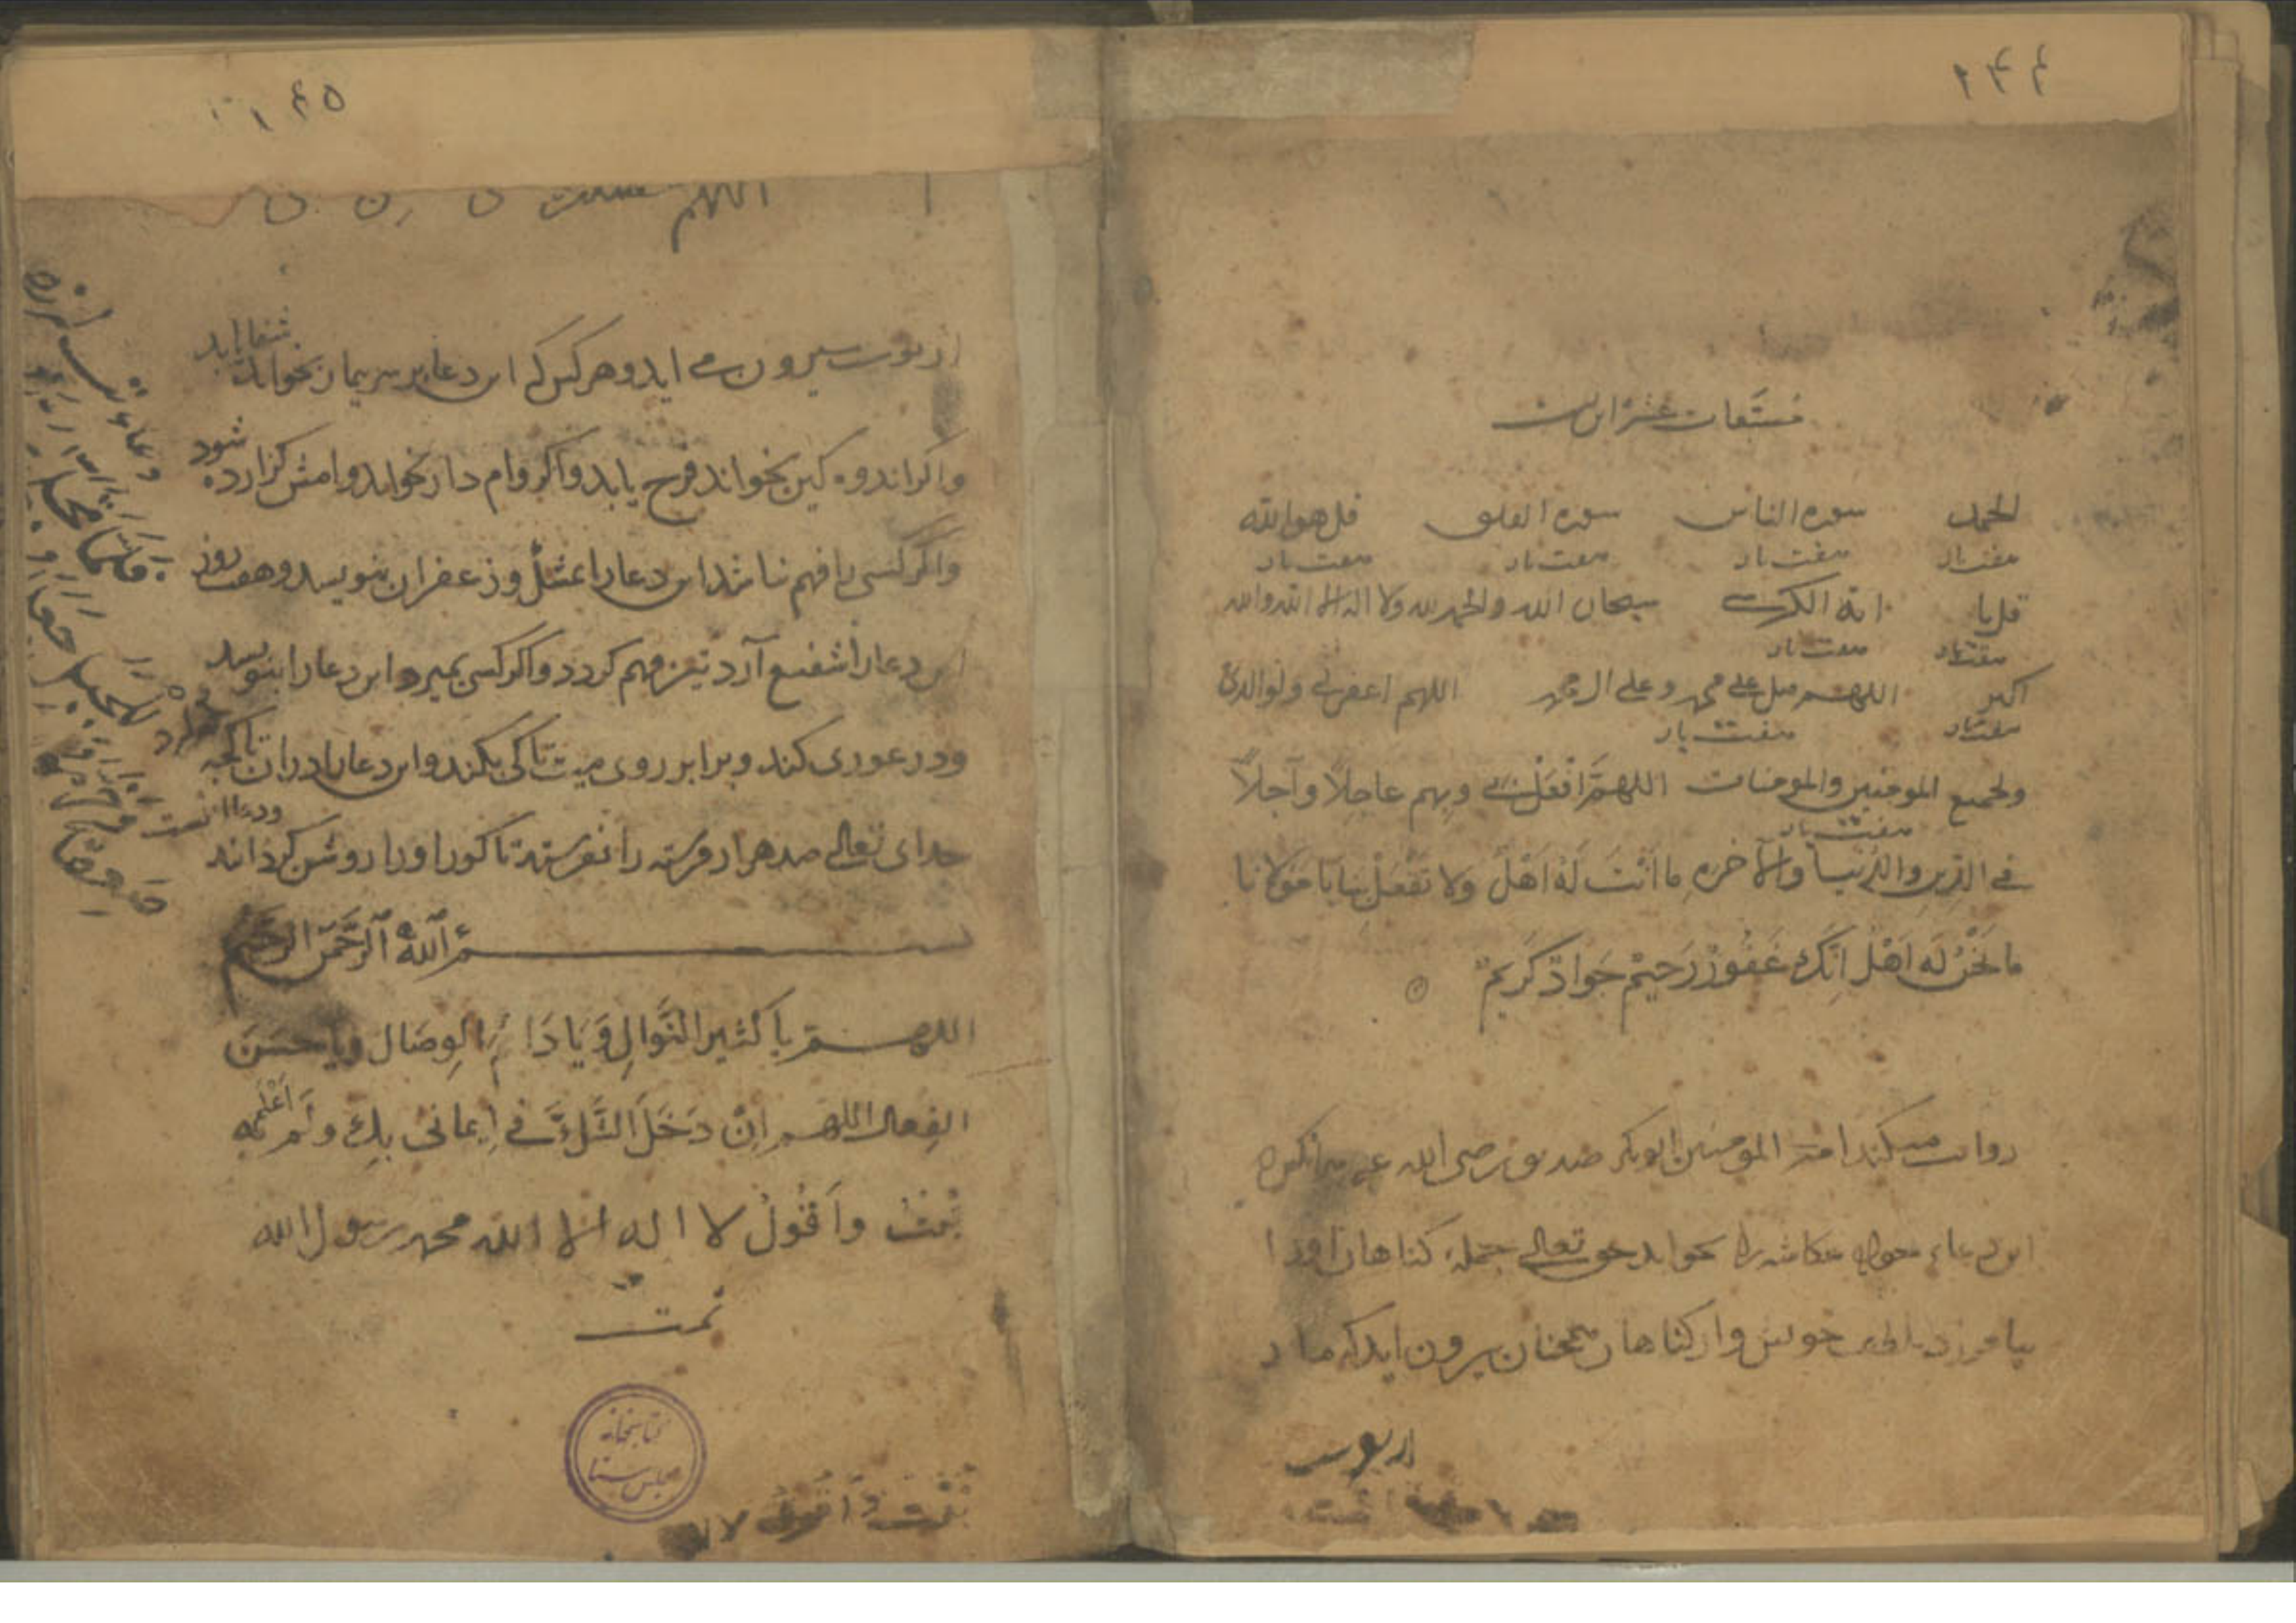 ۲۴۴
مستعات عشر این است
الحمد سوره الناس سوره الفلق قل هو الله
هفت بار هفت بار هفت بار هفت بار
قل یا ایة الکرسی سبحان الله والحمد لله ولا اله الا الله والله
هفت بار هفت بار
اکبر اللهم صل علی محمد وعلی ال محمد اللهم اغفر لی ولوالدی
هفت بار هفت بار
ولجمیع المومنین والمومنات اللهم افعل بی وبهم عاجلا وآجلا
هفت بار
فی الدین والدنیا والآخره ما انت له اهل ولا تفعل بنا یا مولانا
ما نحن له اهل انک غفور رحیم جواد کریم
روایت میکند امیر المومنین ابوبکر صدیق رضی الله عنه هر انکس
این دعاء عکاشه را بخواند حق تعالی جمله کناهان اورا
بیامرزد وار کناهان همچنان بیرون اید که مار
از پوست
۲۴۵
اللهم
از پوست بیرون می اید و هر کس که این دعا بر سر بیمار بخواند شفا یابد
واکر اندوه کین بخواند فرح یابد واکر وام دار بخواند وامش کزارده شود
واکر کسی را فهم نباشد این دعا را بمشک وزعفران بنویسد وهفت روز
این دعا را شفیع آرد تیز فهم کردد واکر کسی بمیرد این دعا را بنویسد
ودر غوری کند وبرابر روی میت تاکی بکند واین دعا را دران تاکچه
ودعا اینست
خدای تعالی صد هزار فرشته را بفرستد تا کور اورا روشن کرداند
بسم الله الرحمن الرحیم
اللهم یا کثیر النوال ویا دائم الوصال ویا حسن
الفعال اللهم ان دخل الشک فی ایمانی بک ولم اعلم به
تبت واقول لا اله الا الله محمد رسول الله
تمت
کتابخانه
مجلس سنا
تبت و اقول لا